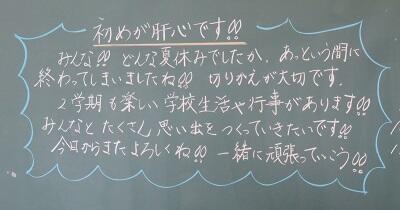 初めが肝心です!!
みんな!! どんな夏休みでしたか。あっという間に
終わってしまいましたね!! 切りかえが大切です。
2学期も楽しい学校生活や行事があります!!
みんなとたくさん思い出をつくっていきたいです!!
今日からまたよろしくね!! 一緒に頑張っていこう!!